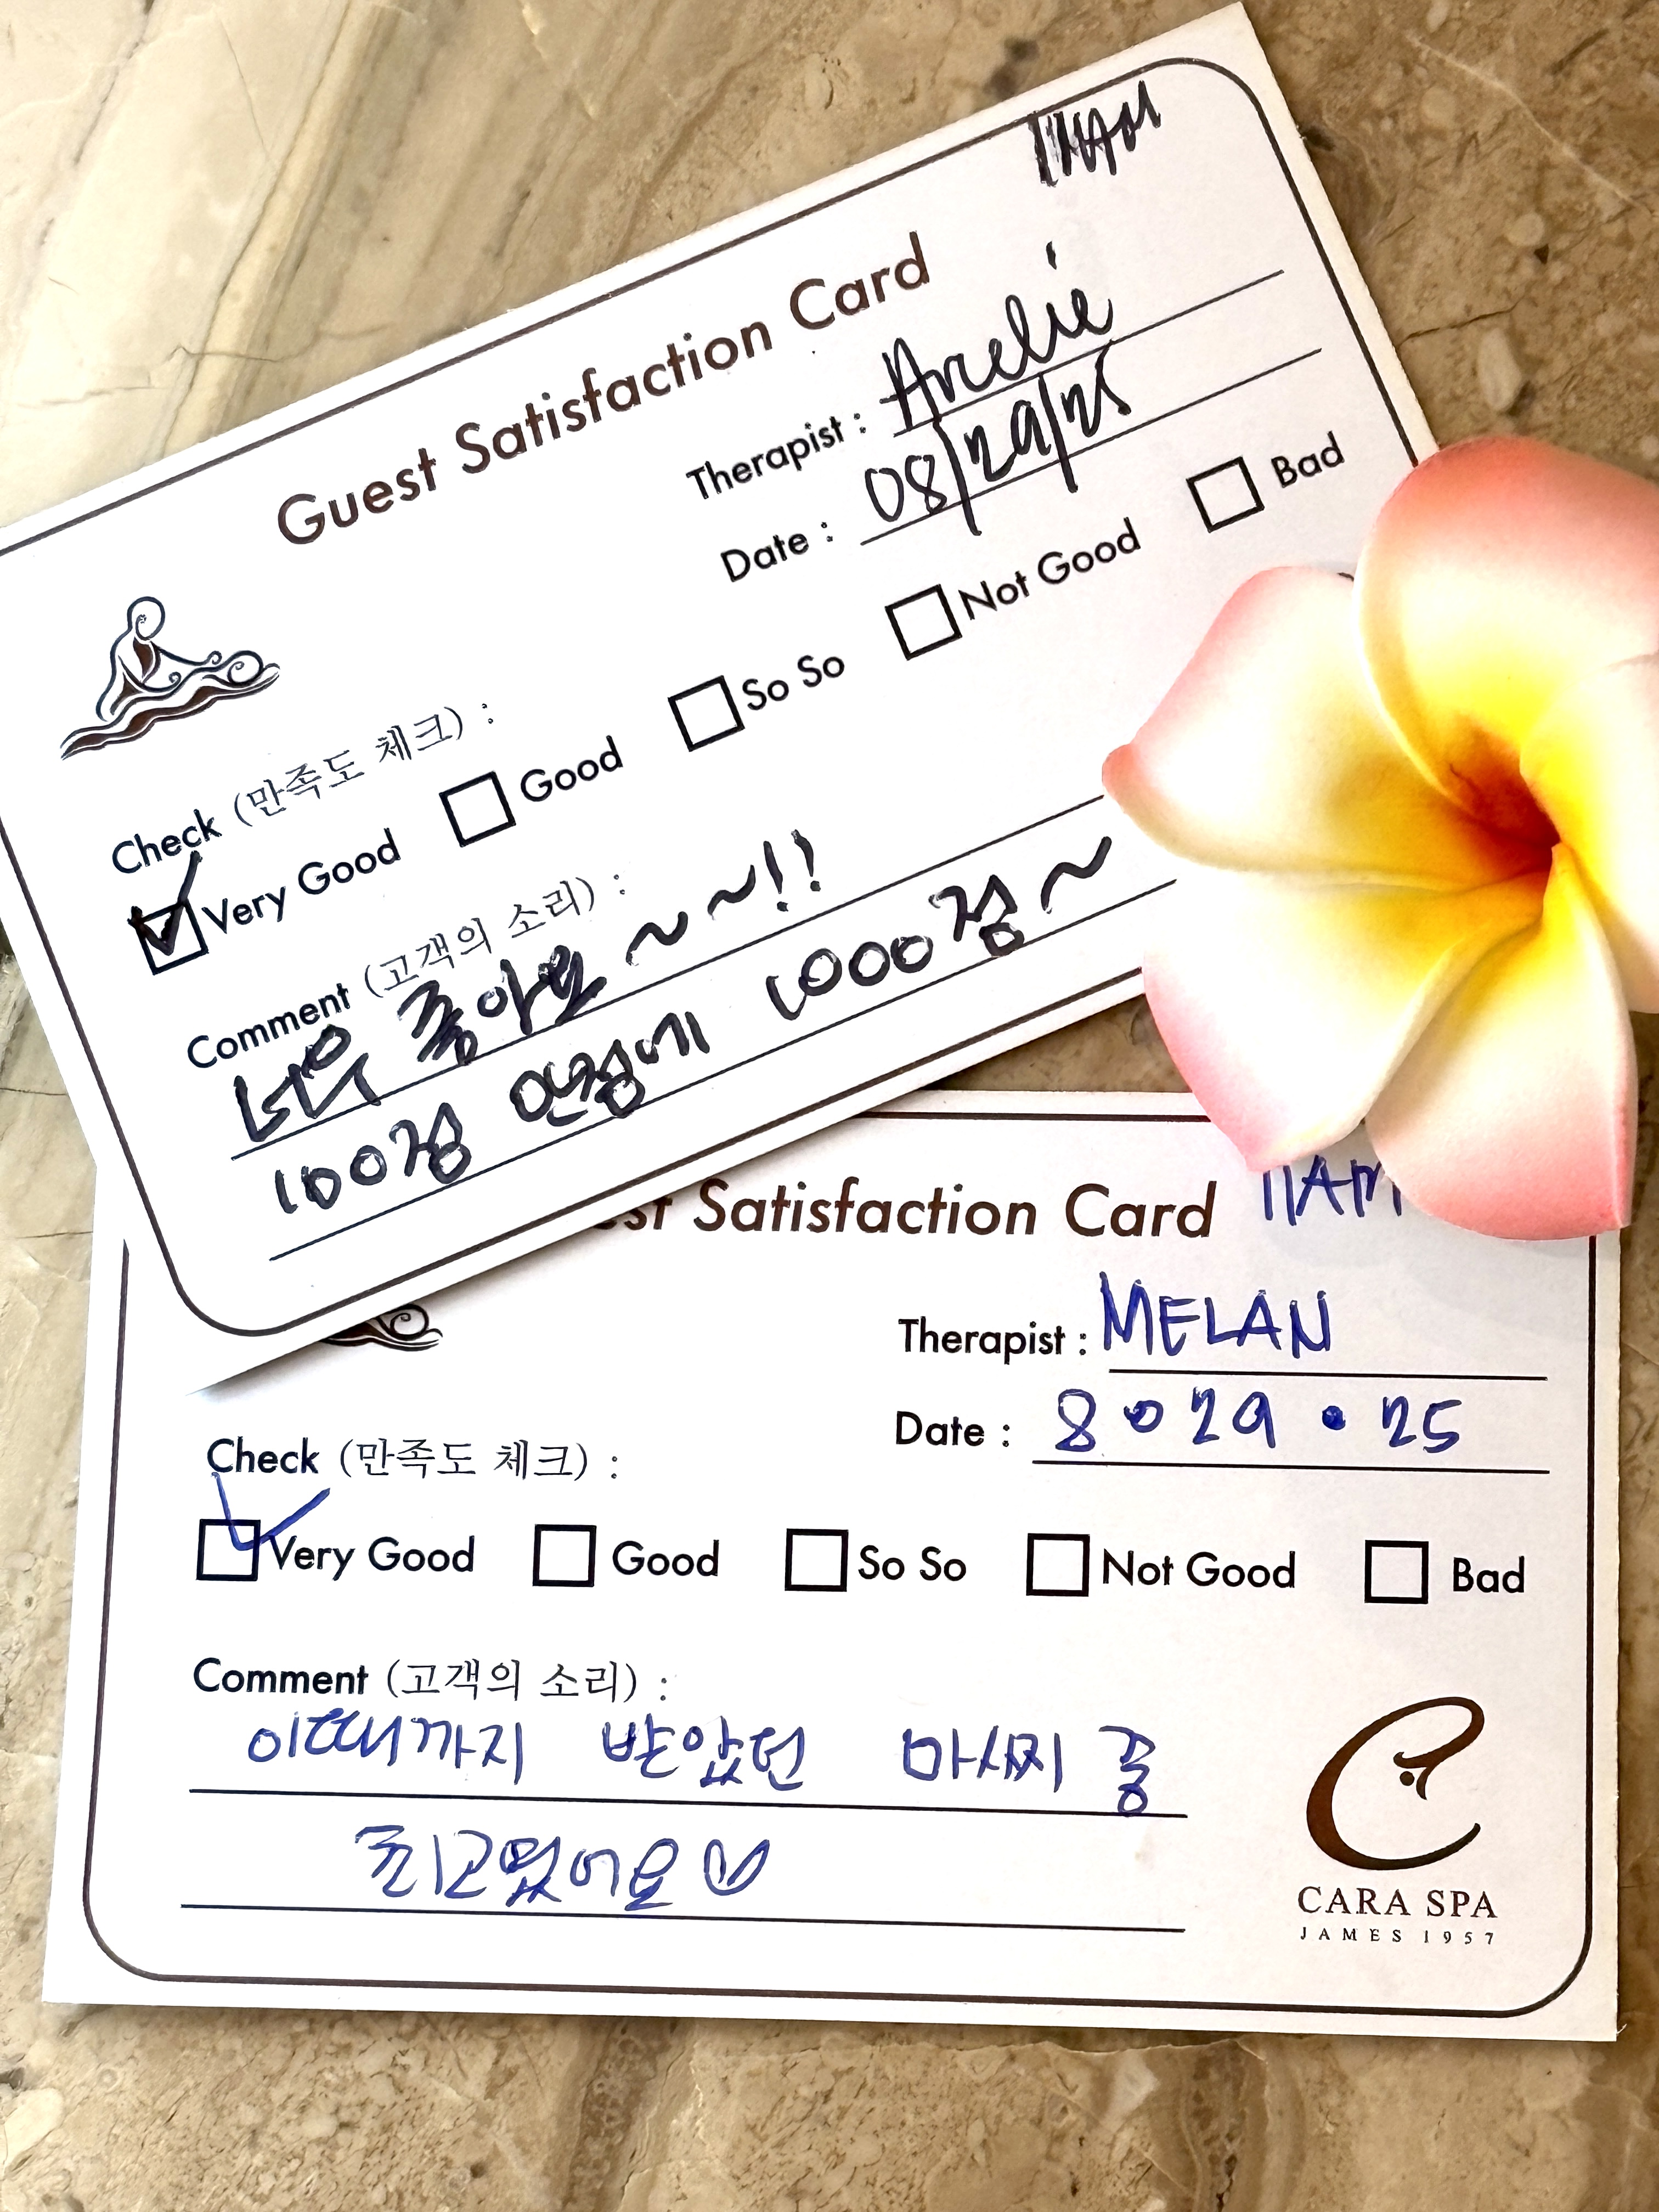 11AM
Guest Satisfaction Card
Therapist : Arelie
Date : 08/29/25
Check (만족도 체크) :
Very Good Good So So Not Good Bad
Comment (고객의 소리) :
너무 좋아요~~!!
100점 만점에 1000점~
Satisfaction Card 11AM
Therapist : MELAN
Date : 8 • 29 • 25
Check (만족도 체크) :
Very Good Good So So Not Good Bad
Comment (고객의 소리) :
이때까지 받았던 마사찌 중
최고였어요
CARA SPA
JAMES 1957